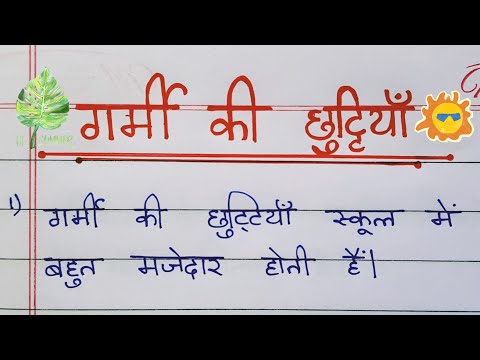 गर्मी की छुट्टियाँ
1) गर्मी की छुट्टियाँ स्कूल में
बहुत मजेदार होती हैं।